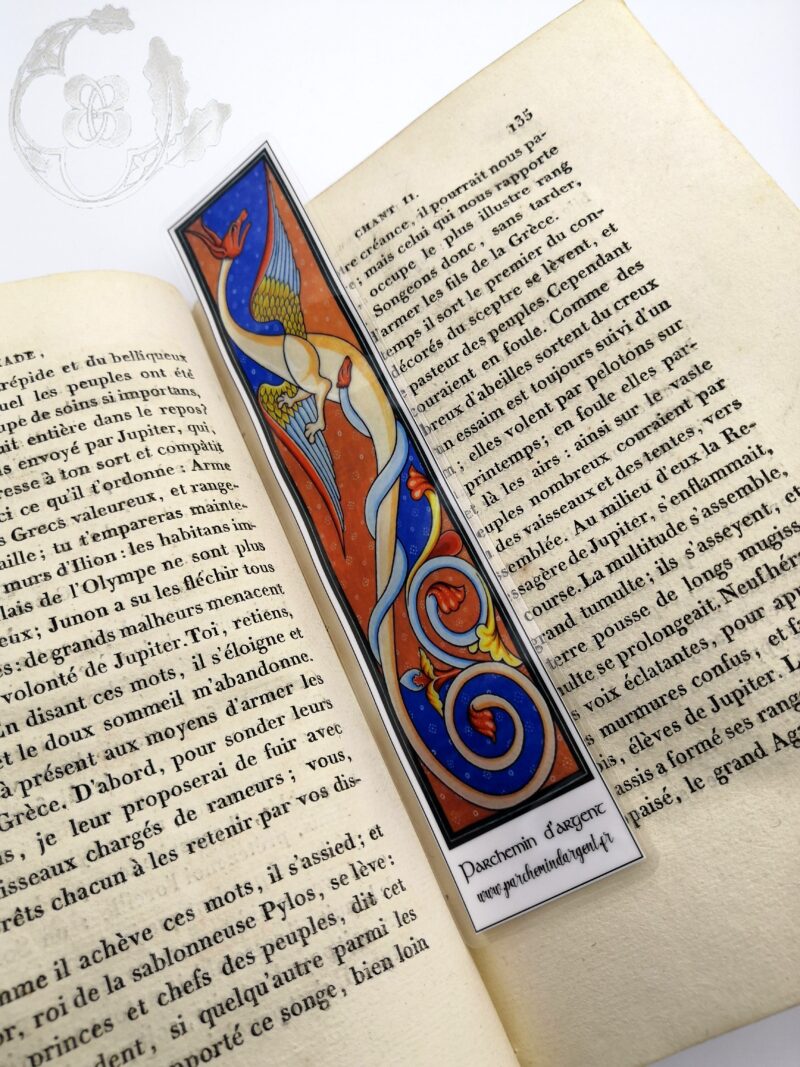 ADE,
répide et du belliqueux
uel les peuples ont été
upe de soins si importans,
uit entière dans le repos?
s envoyé par Jupiter, qui,
resse à ton sort et compâtit
ci ce qu'il t'ordonne : Arme
s Grecs valeureux, et range-
aille; tu t'empareras mainte-
murs d'Ilion : les habitans im-
lais de l'Olympe ne sont plus
eux; Junon a su les fléchir tous
es : de grands malheurs menacent
volonté de Jupiter. Toi, retiens,
En disant ces mots, il s'éloigne et
et le doux sommeil m'abandonne.
à présent aux moyens d'armer les
Grèce. D'abord, pour sonder leurs
s, je leur proposerai de fuir avec
isseaux chargés de rameurs ; vous,
rêts chacun à les retenir par vos dis-
mme il achève ces mots, il s'assied; et
or, roi de la sablonneuse Pylos, se lève :
princes et chefs des peuples, dit cet
dent, si quelqu'autre parmi les
pporté ce songe, bien loin
Parchemin d'argent
www.parchemindargent.fr
CHANT II. 135
tre créance, il pourrait nous pa-
; mais celui qui nous rapporte
occupe le plus illustre rang
Songeons donc, sans tarder,
d'armer les fils de la Grèce.
temps il sort le premier du con-
décorés du sceptre se lèvent, et
pasteur des peuples. Cependant
couraient en foule. Comme des
breux d'abeilles sortent du creux
un essaim est toujours suivi d'un
; elles volent par pelotons sur
printemps; en foule elles par-
et là les airs : ainsi sur le vaste
uples nombreux couraient par
des vaisseaux et des tentes; vers
semblée. Au milieu d'eux la Re-
ssagère de Jupiter, s'enflammait,
course. La multitude s'assemble,
grand tumulte; ils s'asseyent, et
terre pousse de longs mugiss
ulte se prolongeait. Neuf héra
s voix éclatantes, pour app
s murmures confus, et fa
is, élèves de Jupiter. L
assis a formé ses rang
paisé, le grand Ag